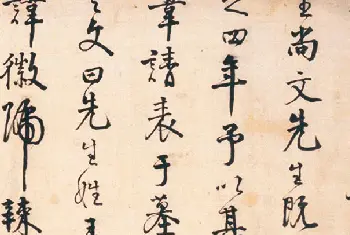 尚文先生既
之四年予以其
葦請表于墓
文曰先生姓王
諱徽號竦